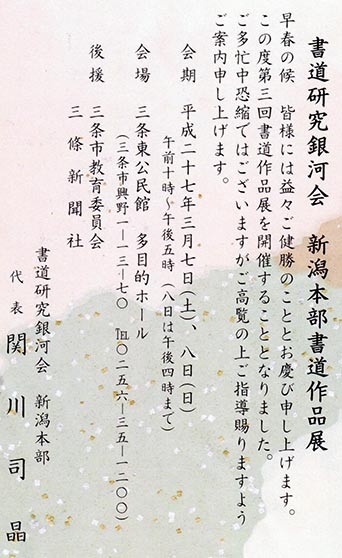 書道研究銀河会　新潟本部書道作品展
早春の候　皆様には益々ご健勝のこととお慶び申し上げます。
この度第三回書道作品展を開催することとなりました。
ご多忙中恐縮ではございますがご高覧の上ご指導賜りますよう
ご案内申し上げます。
会期　平成二十七年三月七日（土）、八日（日）
午前十時〜午後五時（八日は午後四時まで）
会場　三条東公民館　多目的ホール
（三条市興野一ー一三ー七〇　℡〇二五六ー三五ー一二〇〇）
後援　三条市教育委員会
三條新聞社
書道研究銀河会　新潟本部
代表　関川司晶